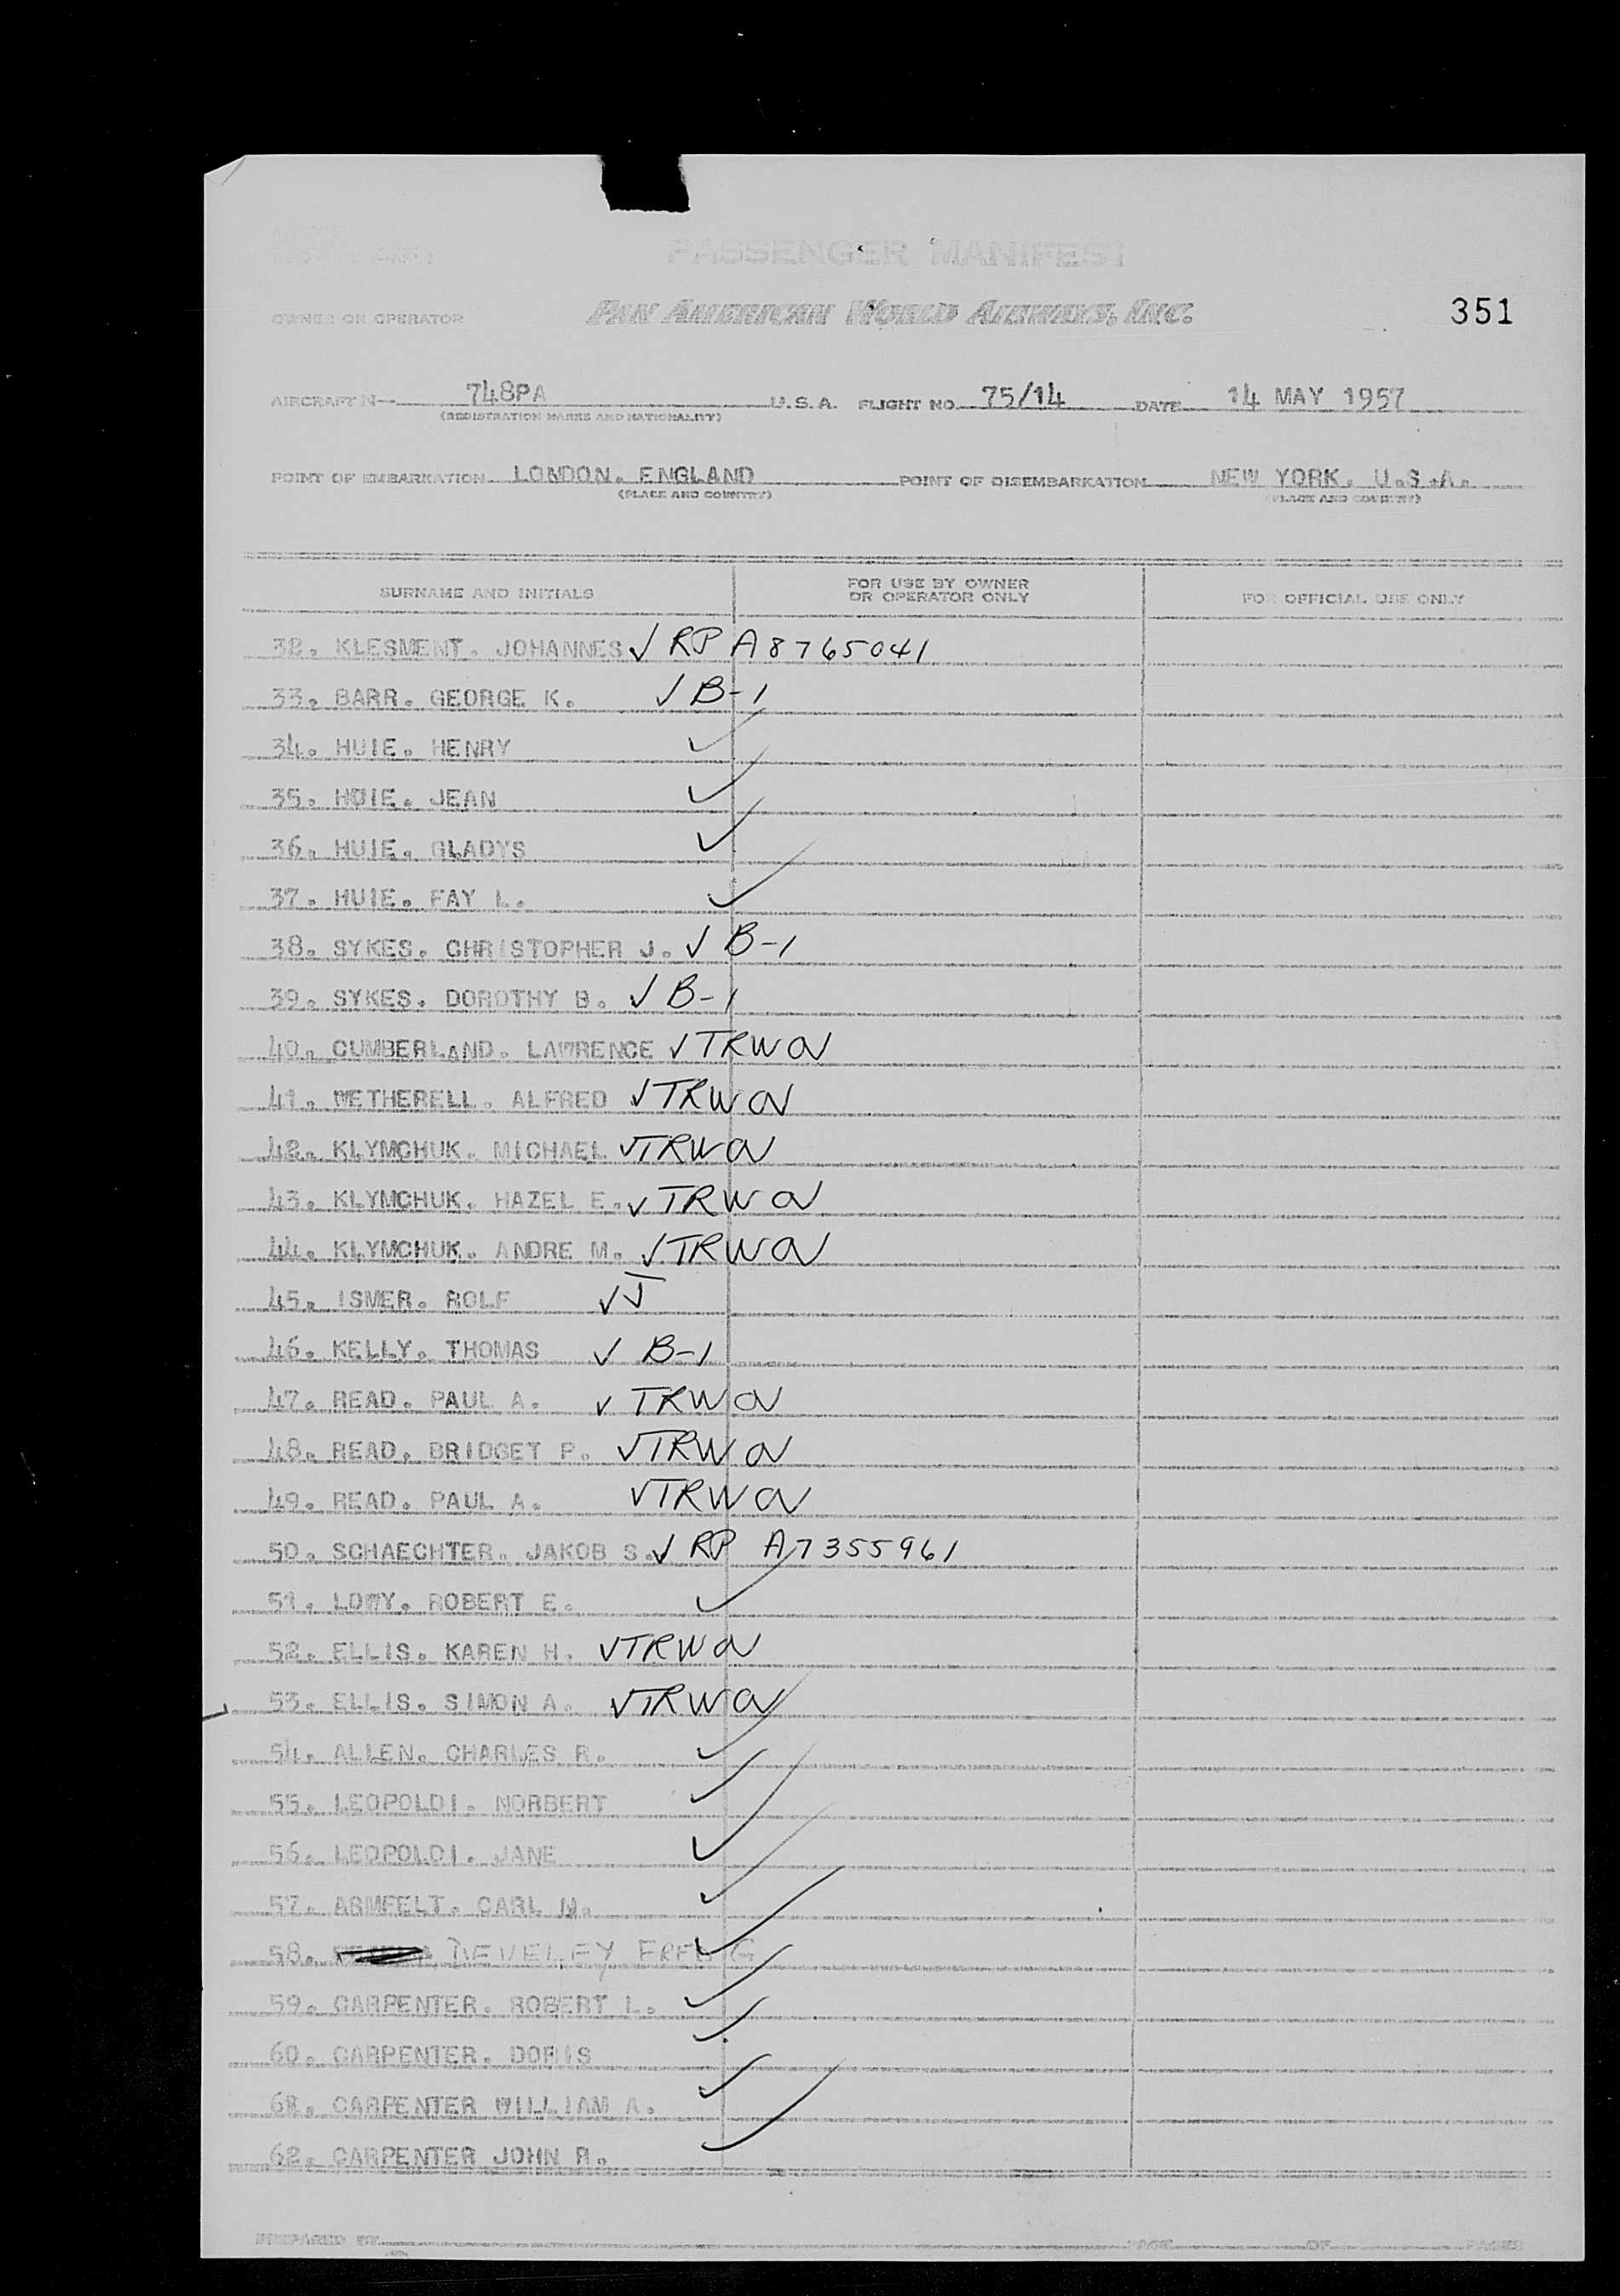 PASSENGER MANIFEST
OWNER OR OPERATOR PAN AMERICAN WORLD AIRWAYS, INC. 351
AIRCRAFT N 748PA U.S.A. FLIGHT NO. 75/14 DATE 14 MAY 1957
(REGISTRATION MARKS AND NATIONALITY)
POINT OF EMBARKATION LONDON. ENGLAND POINT OF DISEMBARKATION NEW YORK. U.S.A.
(PLACE AND COUNTRY) (PLACE AND COUNTRY)
SURNAME AND INITIALS FOR USE BY OWNER OR OPERATOR ONLY FOR OFFICIAL USE ONLY
32. KLESMENT. JOHANNES ✓ RP A8765041
33. BARR. GEORGE K. ✓ B-1
34. HUIE. HENRY ✓
35. HUIE. JEAN ✓
36. HUIE. GLADYS ✓
37. HUIE. FAY L. ✓
38. SYKES. CHRISTOPHER J. ✓ B-1
39. SYKES. DOROTHY B. ✓ B-1
40. CUMBERLAND. LAWRENCE ✓ TRWOV
41. WETHERELL. ALFRED ✓ TRWOV
42. KLYMCHUK. MICHAEL ✓ TRWOV
43. KLYMCHUK. HAZEL E. ✓ TRWOV
44. KLYMCHUK. ANDRE M. ✓ TRWOV
45. ISMER. ROLF ✓ J
46. KELLY. THOMAS ✓ B-1
47. READ. PAUL A. ✓ TRWOV
48. READ. BRIDGET P. ✓ TRWOV
49. READ. PAUL A. ✓ TRWOV
50. SCHAECHTER. JAKOB S. ✓ RP A7355961
51. LOWY. ROBERT E. ✓
52. ELLIS. KAREN H. ✓ TRWOV
53. ELLIS. SIMON A. ✓ TRWOV
54. ALLEN. CHARLES R. ✓
55. LEOPOLDI. NORBERT ✓
56. LEOPOLDI. JANE ✓
57. ARMFELT. CARL ✓
58. DEVELEY ✓ G
59. CARPENTER. ROBERT L. ✓
60. CARPENTER. DORIS ✓
61. CARPENTER WILLIAM A. ✓
62. CARPENTER JOHN R. ✓
PREPARED BY PAGE OF PAGES